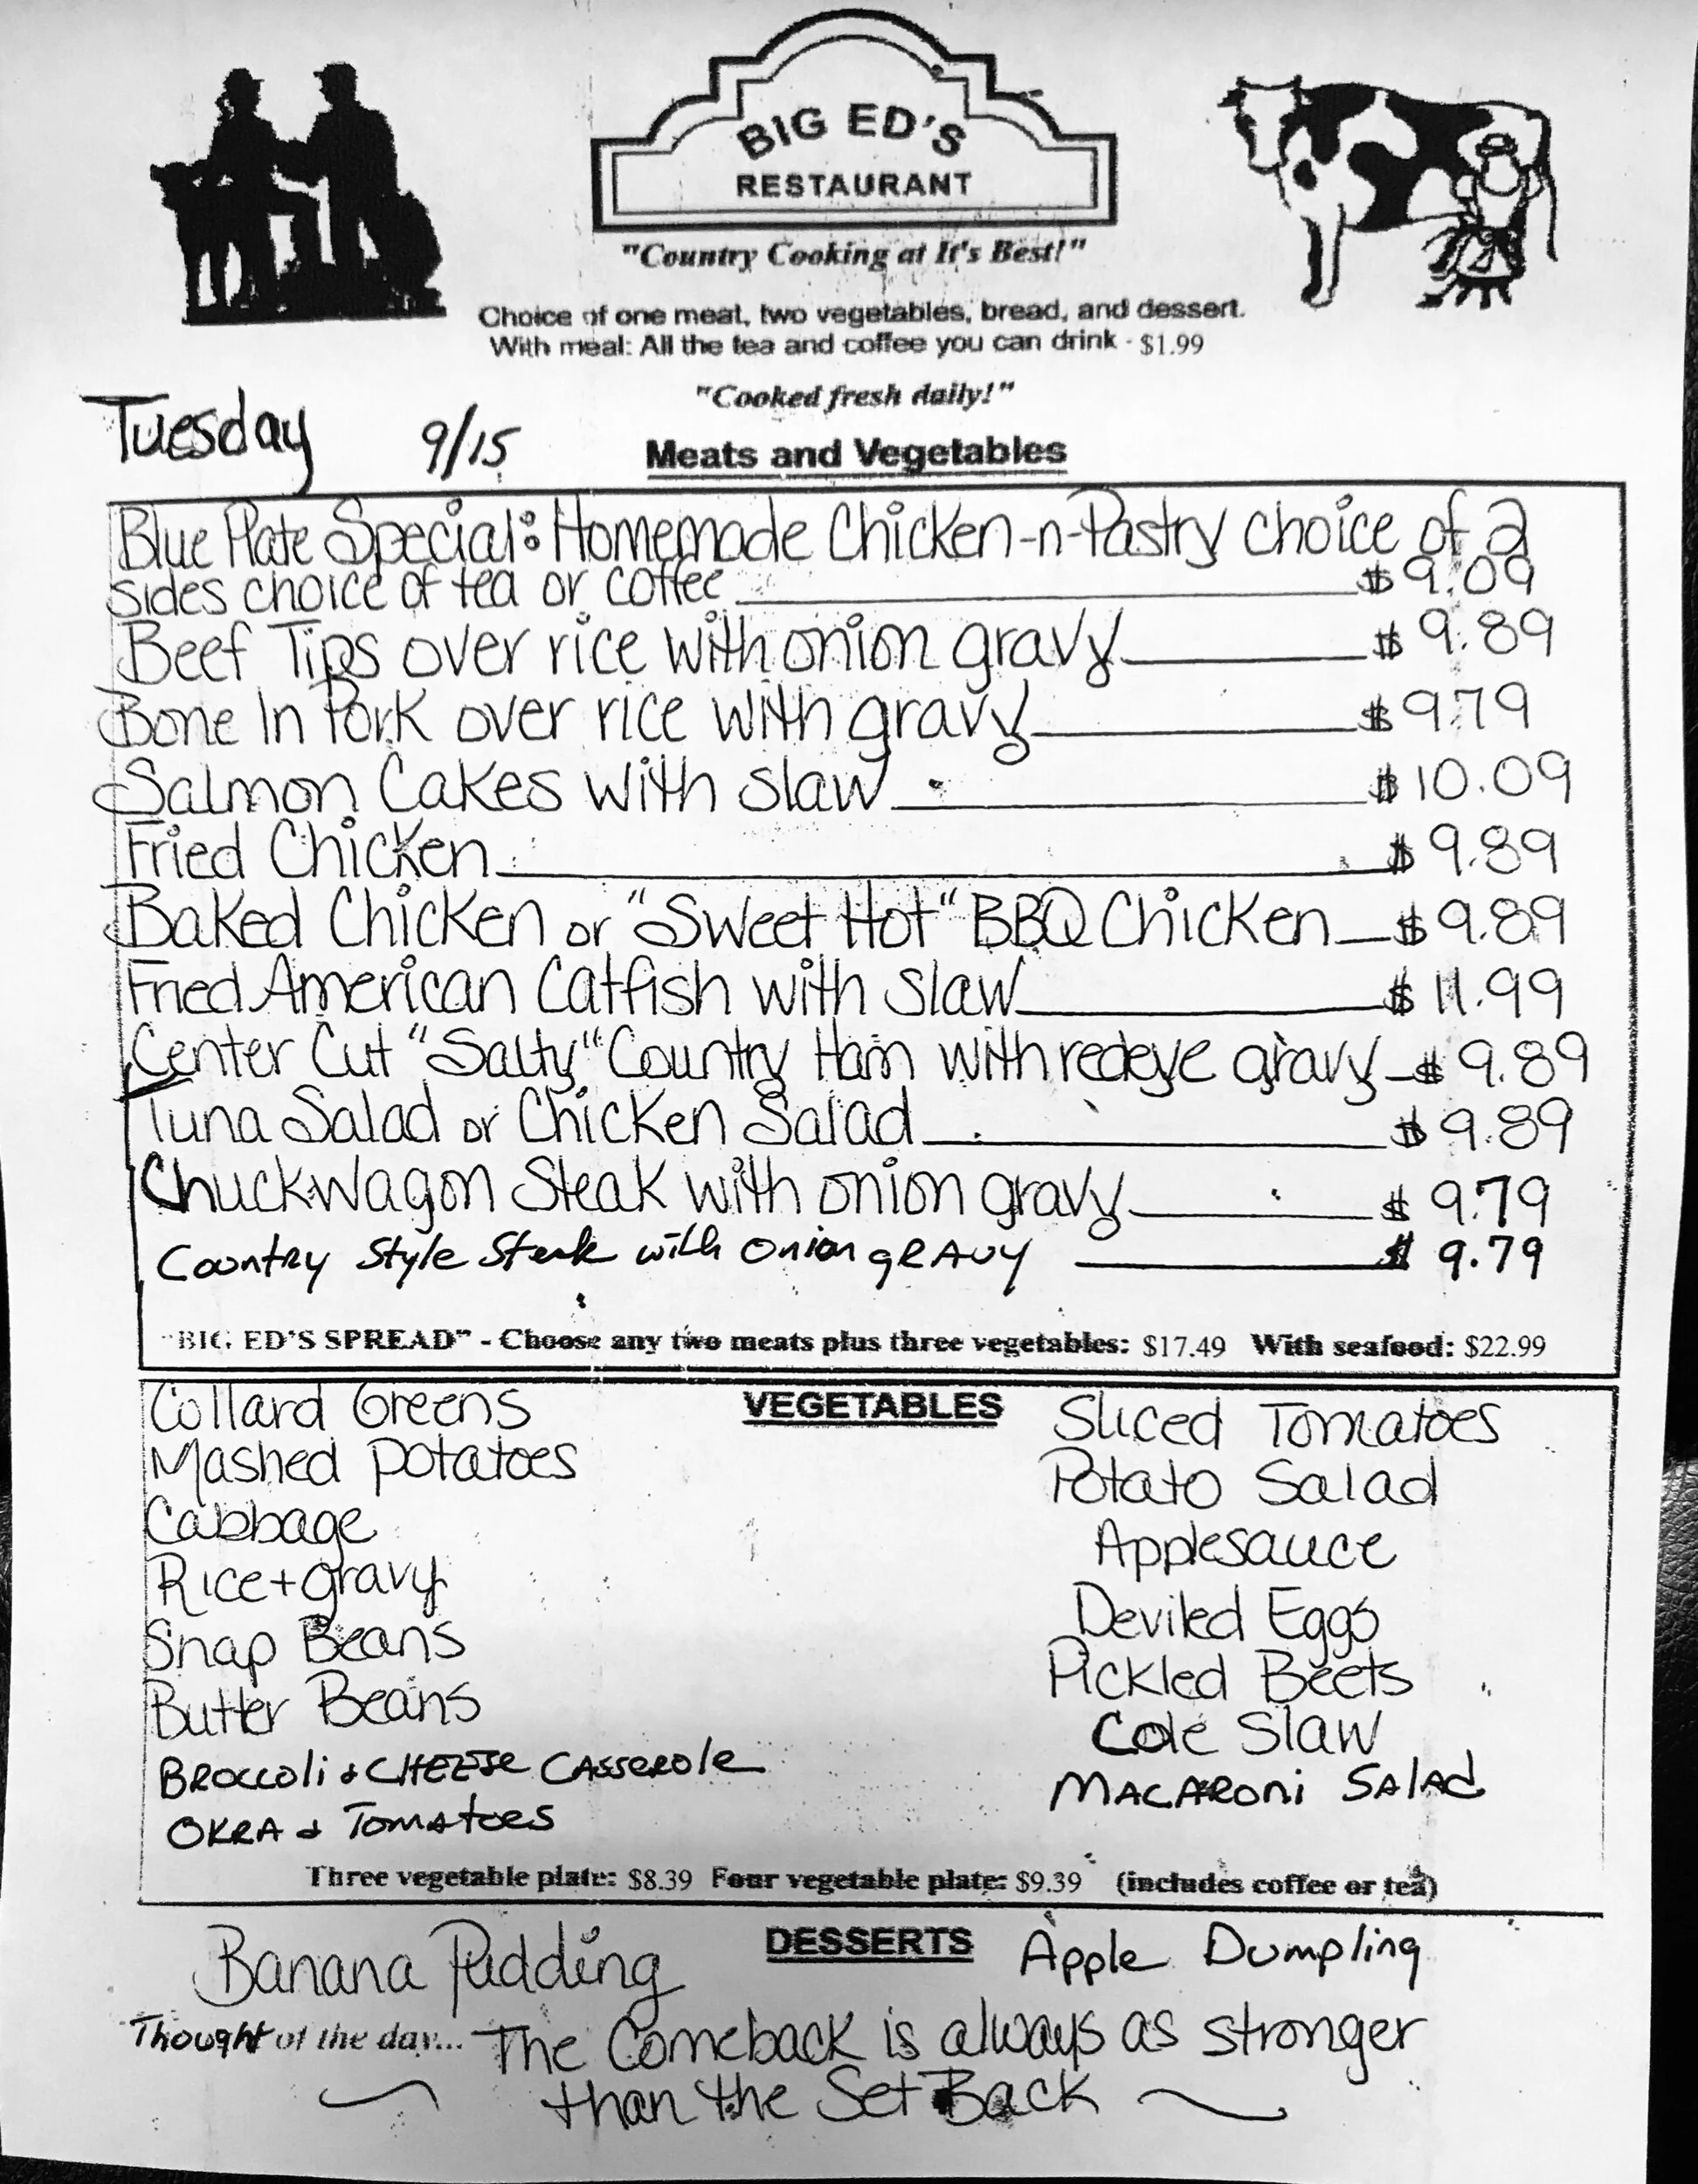 BIG ED'S
RESTAURANT
"Country Cooking at It's Best!"
Choice of one meat, two vegetables, bread, and dessert.
With meal: All the tea and coffee you can drink - $1.99
"Cooked fresh daily!"
Tuesday 9/15
Meats and Vegetables
Blue Plate Special: Homemade Chicken-n-Pastry choice of 2
sides choice of tea or coffee $9.09
Beef Tips over rice with onion gravy $9.89
Bone In Pork over rice with gravy $9.79
Salmon Cakes with slaw $10.09
Fried Chicken $9.89
Baked Chicken or "Sweet Hot" BBQ Chicken $9.89
Fried American Catfish with slaw $11.99
Center Cut "Salty" Country Ham with redeye gravy $9.89
Tuna Salad or Chicken Salad $9.89
Chuckwagon Steak with onion gravy $9.79
Country Style Steak with Onion gRAVY $9.79
"BIG ED'S SPREAD" - Choose any two meats plus three vegetables: $17.49 With seafood: $22.99
VEGETABLES
Collard Greens
Mashed Potatoes
Cabbage
Rice + gravy
Snap Beans
Butter Beans
BROCCOLi & CHEESE CASSEROLE
OKRA & TOMATOES
Sliced Tomatoes
Potato Salad
Applesauce
Deviled Eggs
Pickled Beets
Cole Slaw
MACARONi SALAD
Three vegetable plate: $8.39 Four vegetable plate: $9.39 (includes coffee or tea)
DESSERTS
Banana Pudding Apple Dumpling
Thought of the day... The Comeback is always as stronger
than the Set Back